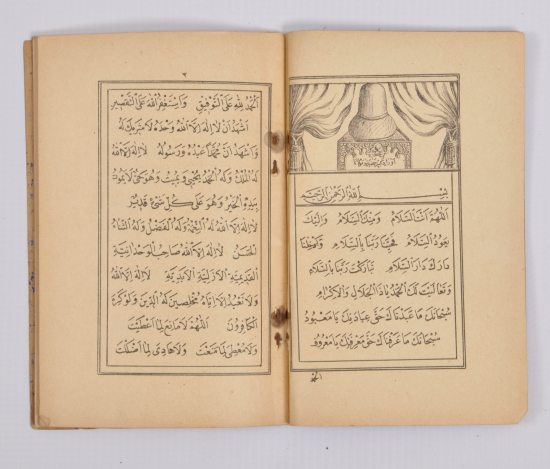 بسم الله الرحمن الرحيم
اللهم انت السلام ومنك السلام واليك
يعود السلام فحينا ربنا بالسلام وادخلنا
دارك دار السلام تباركت ربنا بالسلام
وتعاليت لك الحمد ياذا الجلال والاكرام
سبحانك ما عبدناك حق عبادتك يا معبود
سبحانك ما عرفناك حق معرفتك يا معروف
الحمد
٢
الحمد لله على التوفيق واستغفر الله على التقصير
اشهد ان لا اله الا الله وحده لا شريك له
واشهد ان محمدا عبده ورسوله لا اله الا الله
له الملك وله الحمد يحيى ويميت وهو حى لا يموت
بيده الخير وهو على كل شئ قدير
لا اله الا الله له النعمة وله الفضل وله الثناء
الحسن لا اله الا الله صاحب الوحدانية
القديمة الازلية الابدية لا اله الا الله
ولا نعبد الا اياه مخلصين له الدين ولو كره
الكافرون اللهم لا مانع لما اعطيت
ولا معطى لما منعت ولا هادى لما اضللت